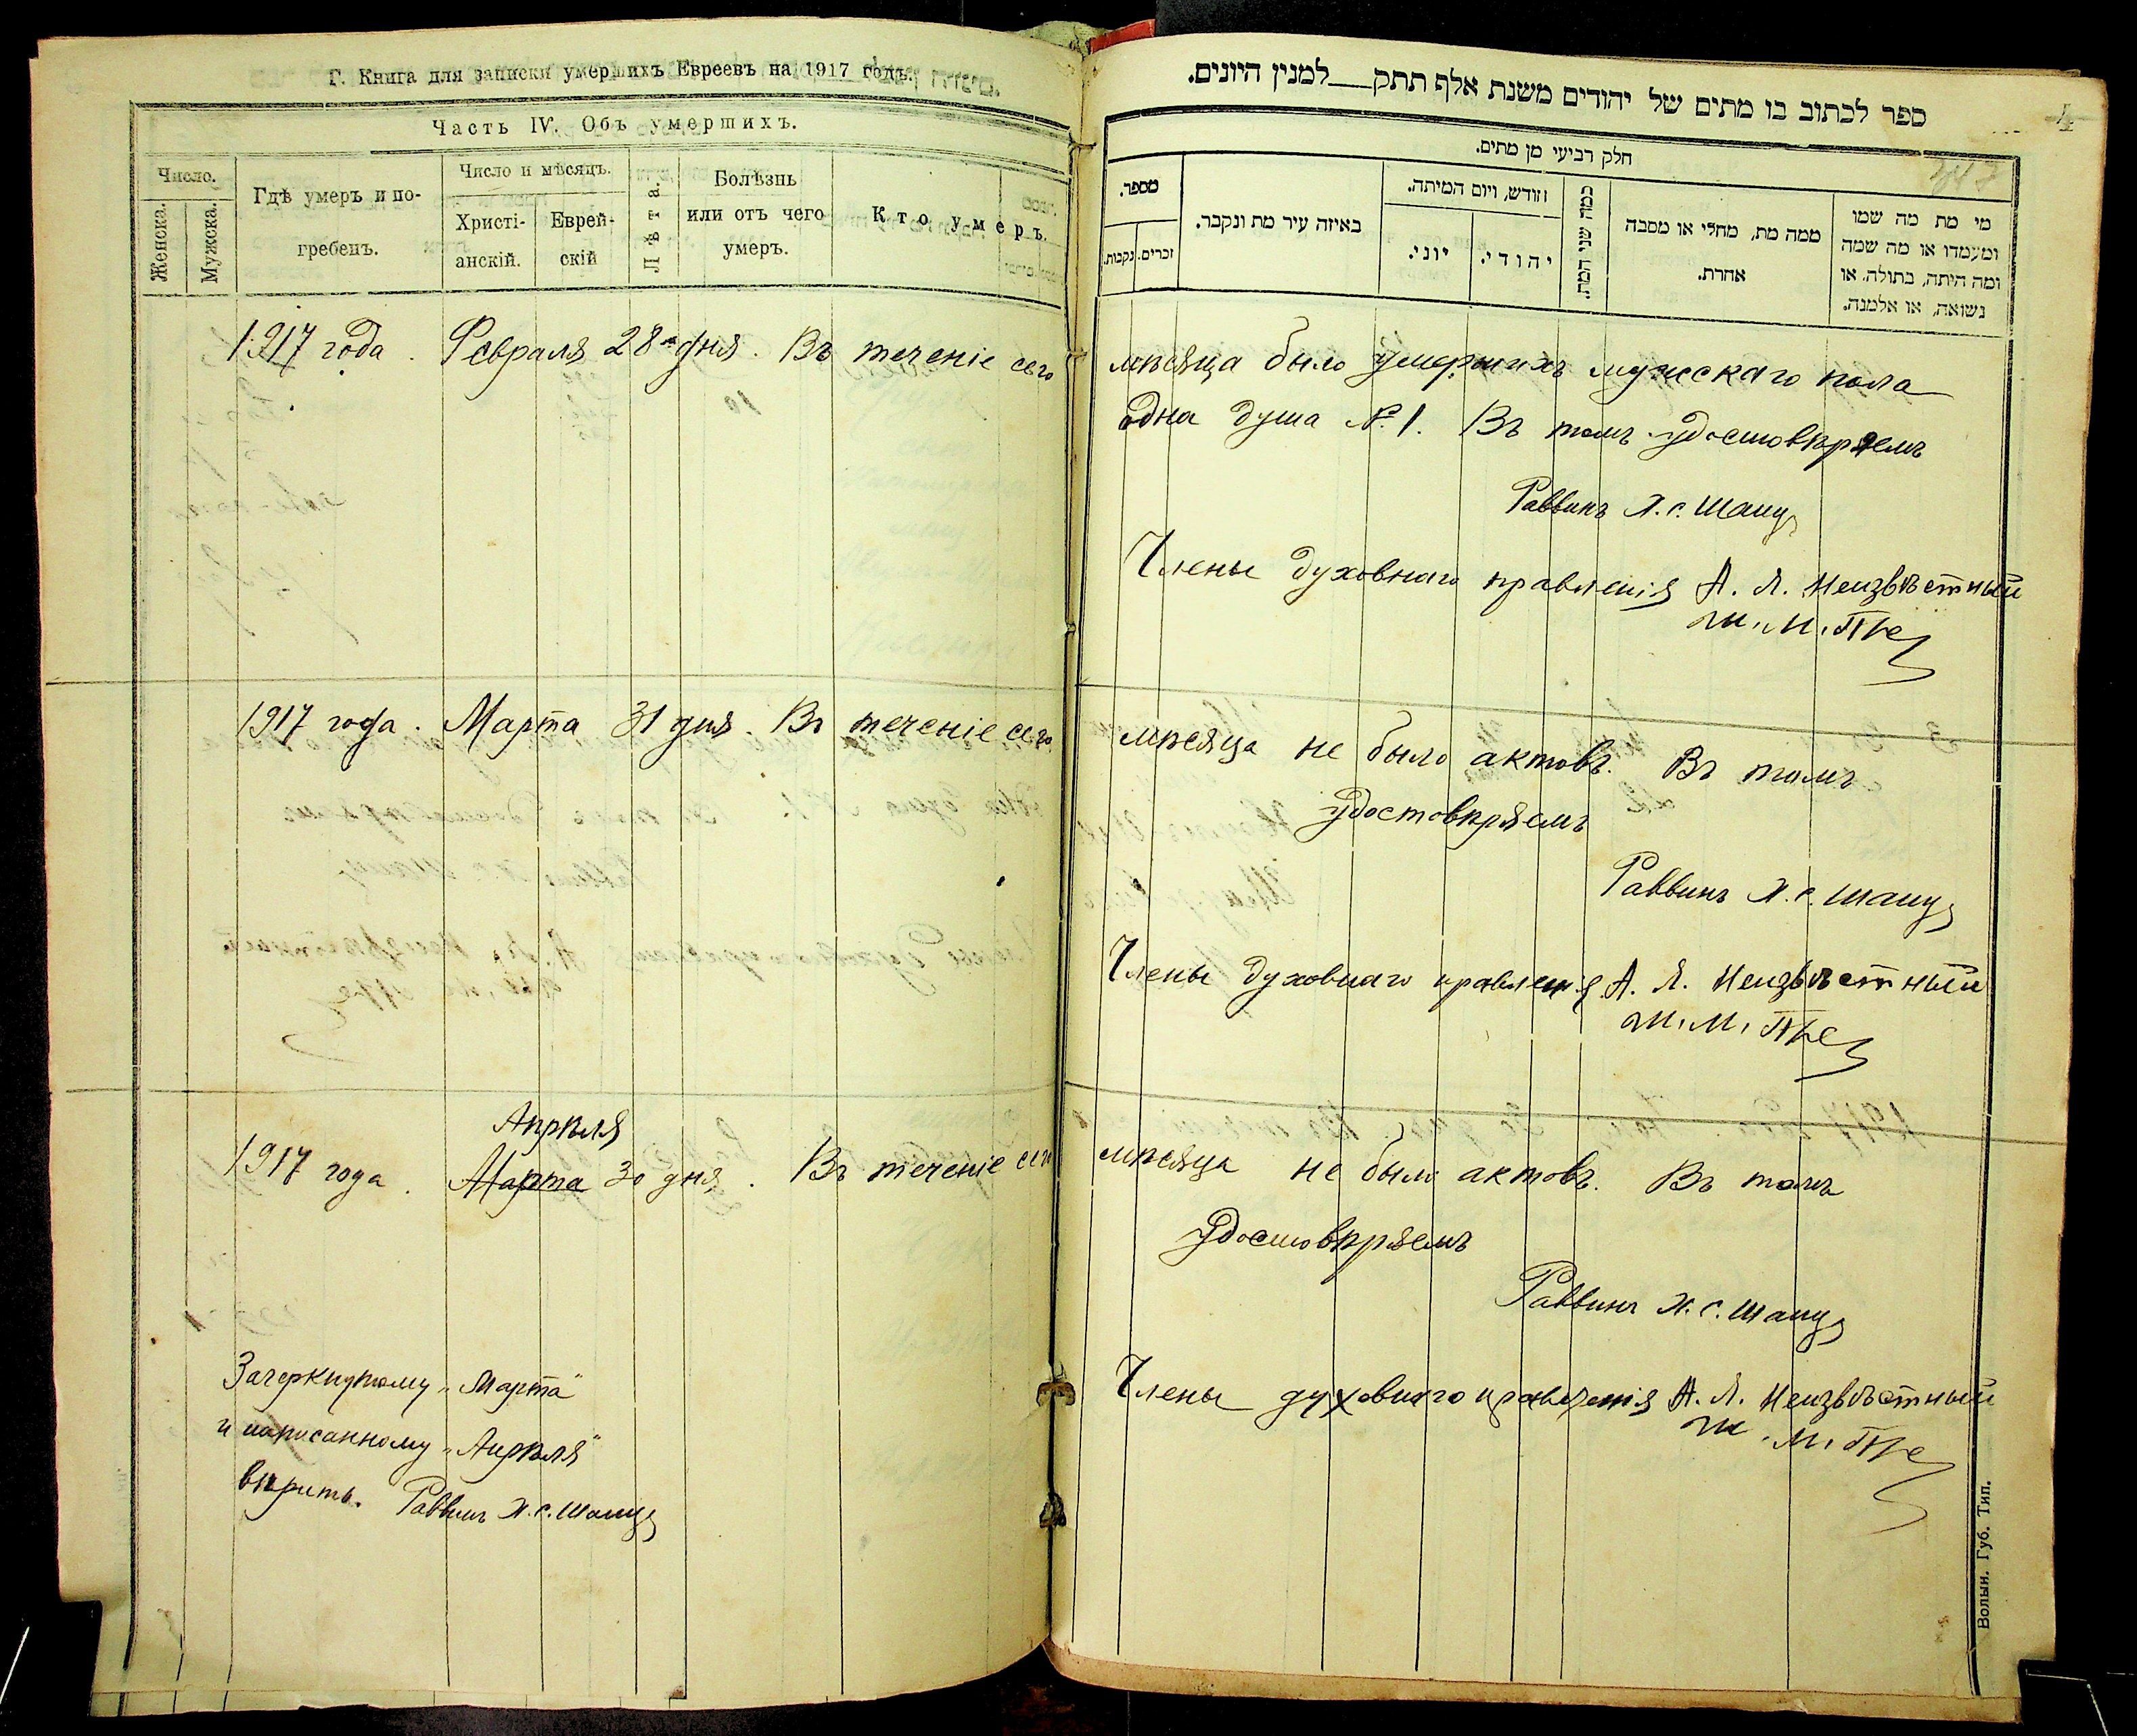 Г. Книга для записки умершихъ Евреевъ на 1917 годъ.
Часть IV. Объ умершихъ.
Число.
Женска.
Мужска.
Гдѣ умеръ и по-
гребенъ.
Число и мѣсяцъ.
Христі-
анскій.
Еврей-
скій
Лѣта.
Болѣзнь
или отъ чего
умеръ.
Кто умеръ.
1917 года. Февраля 28 дня. Въ теченіе сего
1917 года. Марта 31 дня. Въ теченіе сего
Апрѣля
1917 года. Марта 30 дня. Въ теченіе сего
Зачеркнутому „Марта"
и написанному „Апрѣля"
вѣрить. Раввинъ Х. С. Шацъ
ספר לכתוב בו מתים של יהודים משנת אלף תתק למנין היונים.
4
חלק רביעי מן מתים.
מספר.
נקבות.
זכרים.
באיזה עיר מת ונקבר.
חודש, ויום המיתה.
יוני.
יהודי.
כמה שני המת.
ממה מת, מחלי או מסבה
אחרת.
מי מת מה שמו
ומעמדו או מה שמה
ומה היתה, בתולה, או
נשואה, או אלמנה.
мѣсяца было умершихъ мужскаго пола
одна душа №. 1. Въ томъ удостовѣряемъ
Раввинъ Х. С. Шацъ
Члены духовнаго правленія А. Л. Неизвѣстный
Ш. М.
мѣсяца не было актовъ. Въ томъ
удостовѣряемъ
Раввинъ Х. С. Шацъ
Члены духовнаго правленія А. Л. Неизвѣстный
Ш. М.
мѣсяца не было актовъ. Въ томъ
удостовѣряемъ
Раввинъ Х. С. Шацъ
Члены духовнаго правленія А. Л. Неизвѣстный
Ш. М.
Волын. Губ. Тип.